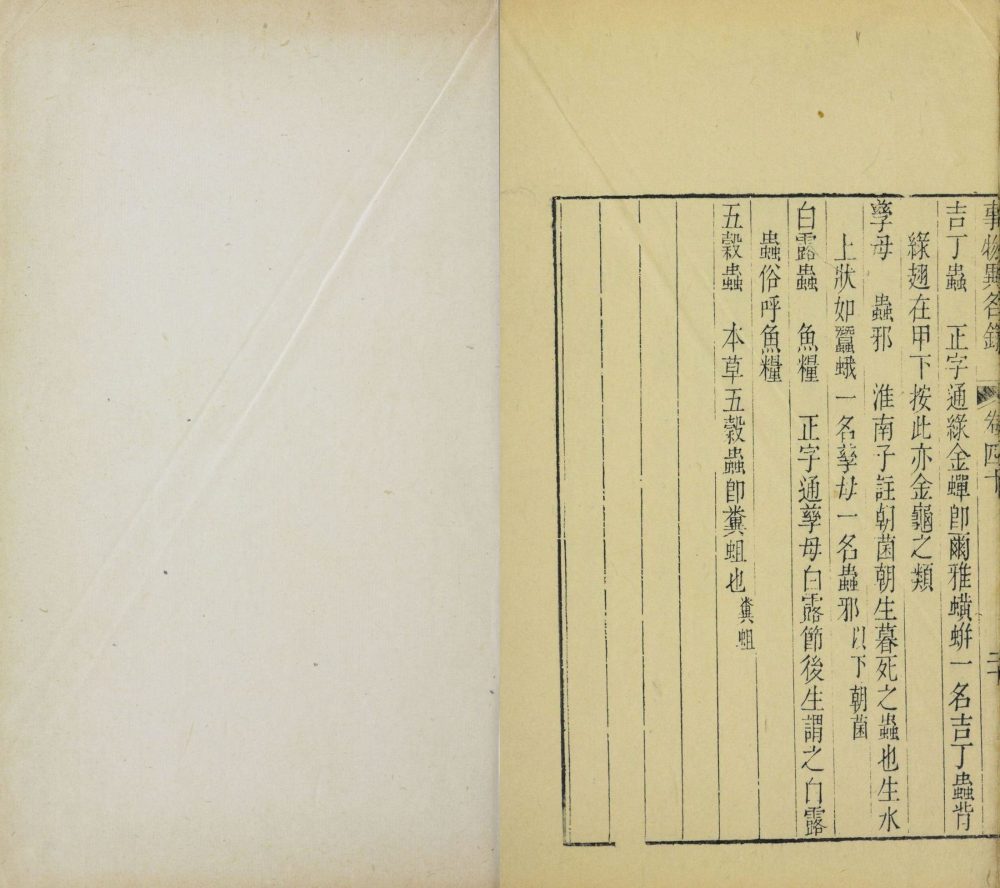 事物異名錄 卷四十 二十
吉丁蟲 正字通綠金蟬卽爾雅蟥蛢一名吉丁蟲背
綠翅在甲下按此亦金龜之類
孳母 蟲邪 淮南子註朝菌朝生暮死之蟲也生水
上狀如蠶蛾一名孳母一名蟲邪 以下朝菌
白露蟲 魚糧 正字通孳母白露節後生謂之白露
蟲俗呼魚糧
五穀蟲 本草五穀蟲卽糞蛆也 糞蛆